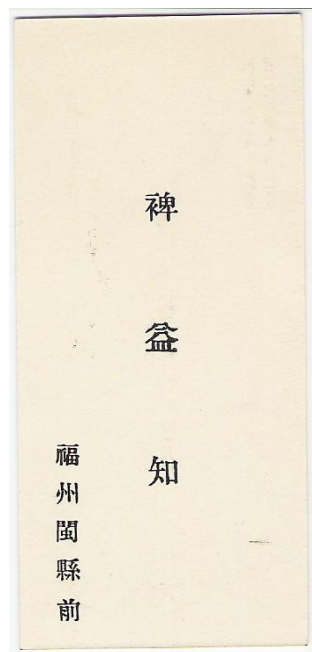 裨益知
福州閩縣前